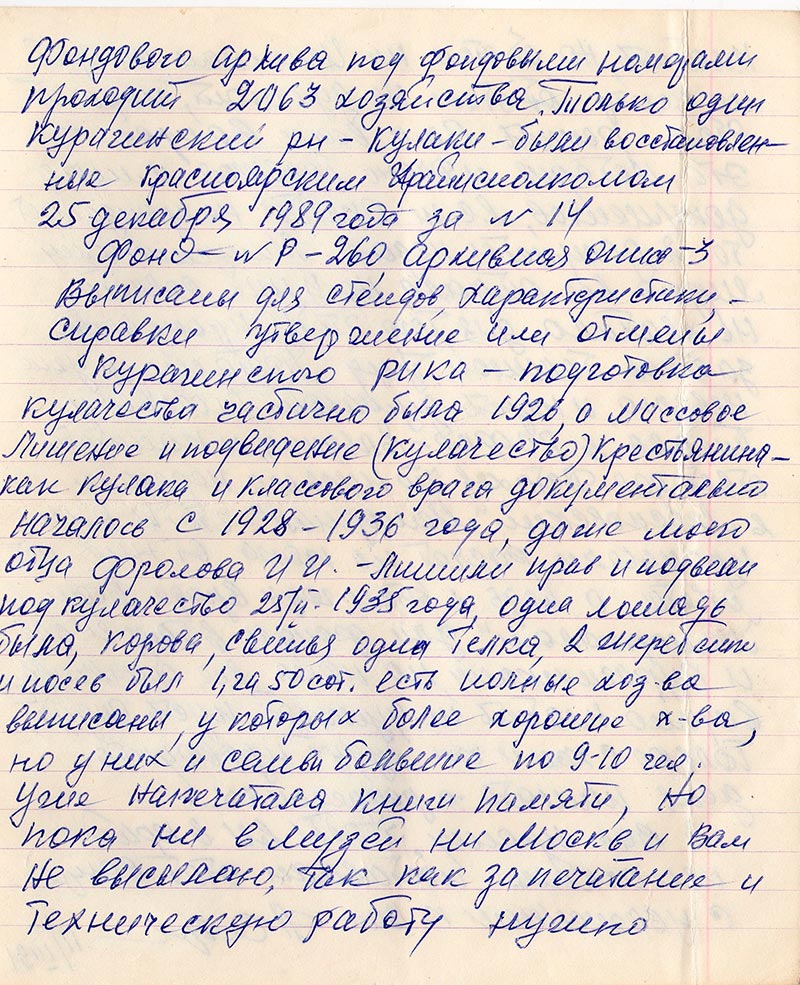 Фондового архива под фондовыми номерами
проходит 2063 хозяйства. Только один
Курагинский рн – кулаки – были восстановлен–
ные Красноярским Крайисполкомом
25 декабря 1989 года за № 14
Фонд – № Р – 260, архивная опись – 3
Выписаны для стендов, характеристики, –
справки утвержение или отмены
Курагинского рика – подготовка
кулачества частично была 1926, а массовое
Лишение и подведение (кулачество) Крестьянина –
как кулака и классового врага документально
началось с 1928 – 1936 года, даже моего
отца Фролова И И. – Лишили прав и подвели
под кулачество 1935 года, одна лошадь
была, корова, свинья одна Телка, 2 жеребят
и посев был 1, га 50 сот. есть полные хоз-ва
выписаны, у которых более хорошие х-ва,
но у них и семьи большие по 9-10 чел.
Уже напечатала книги памяти, но
пока ни в музей ни Москв и Вам
не высылаю, так как за печатание и
Техническую работу нужно